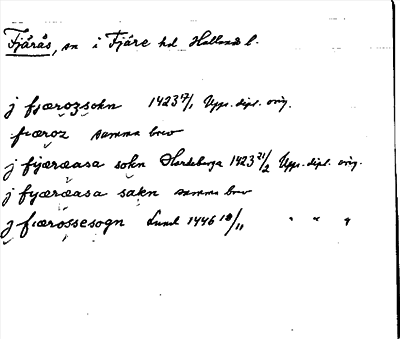 Fjärås, sn i Fjäre hd Hallands l.
j fjærozsokn 1423 17/1 Upps. dipl. orig.
fiæroz samma brev
j fyæræasa sokn Hordeberga 1423 21/2 Upps. dipl. orig.
j fyæræasa sakn samma brev
j fiærossesogn Lund 1446 18/11 " " "